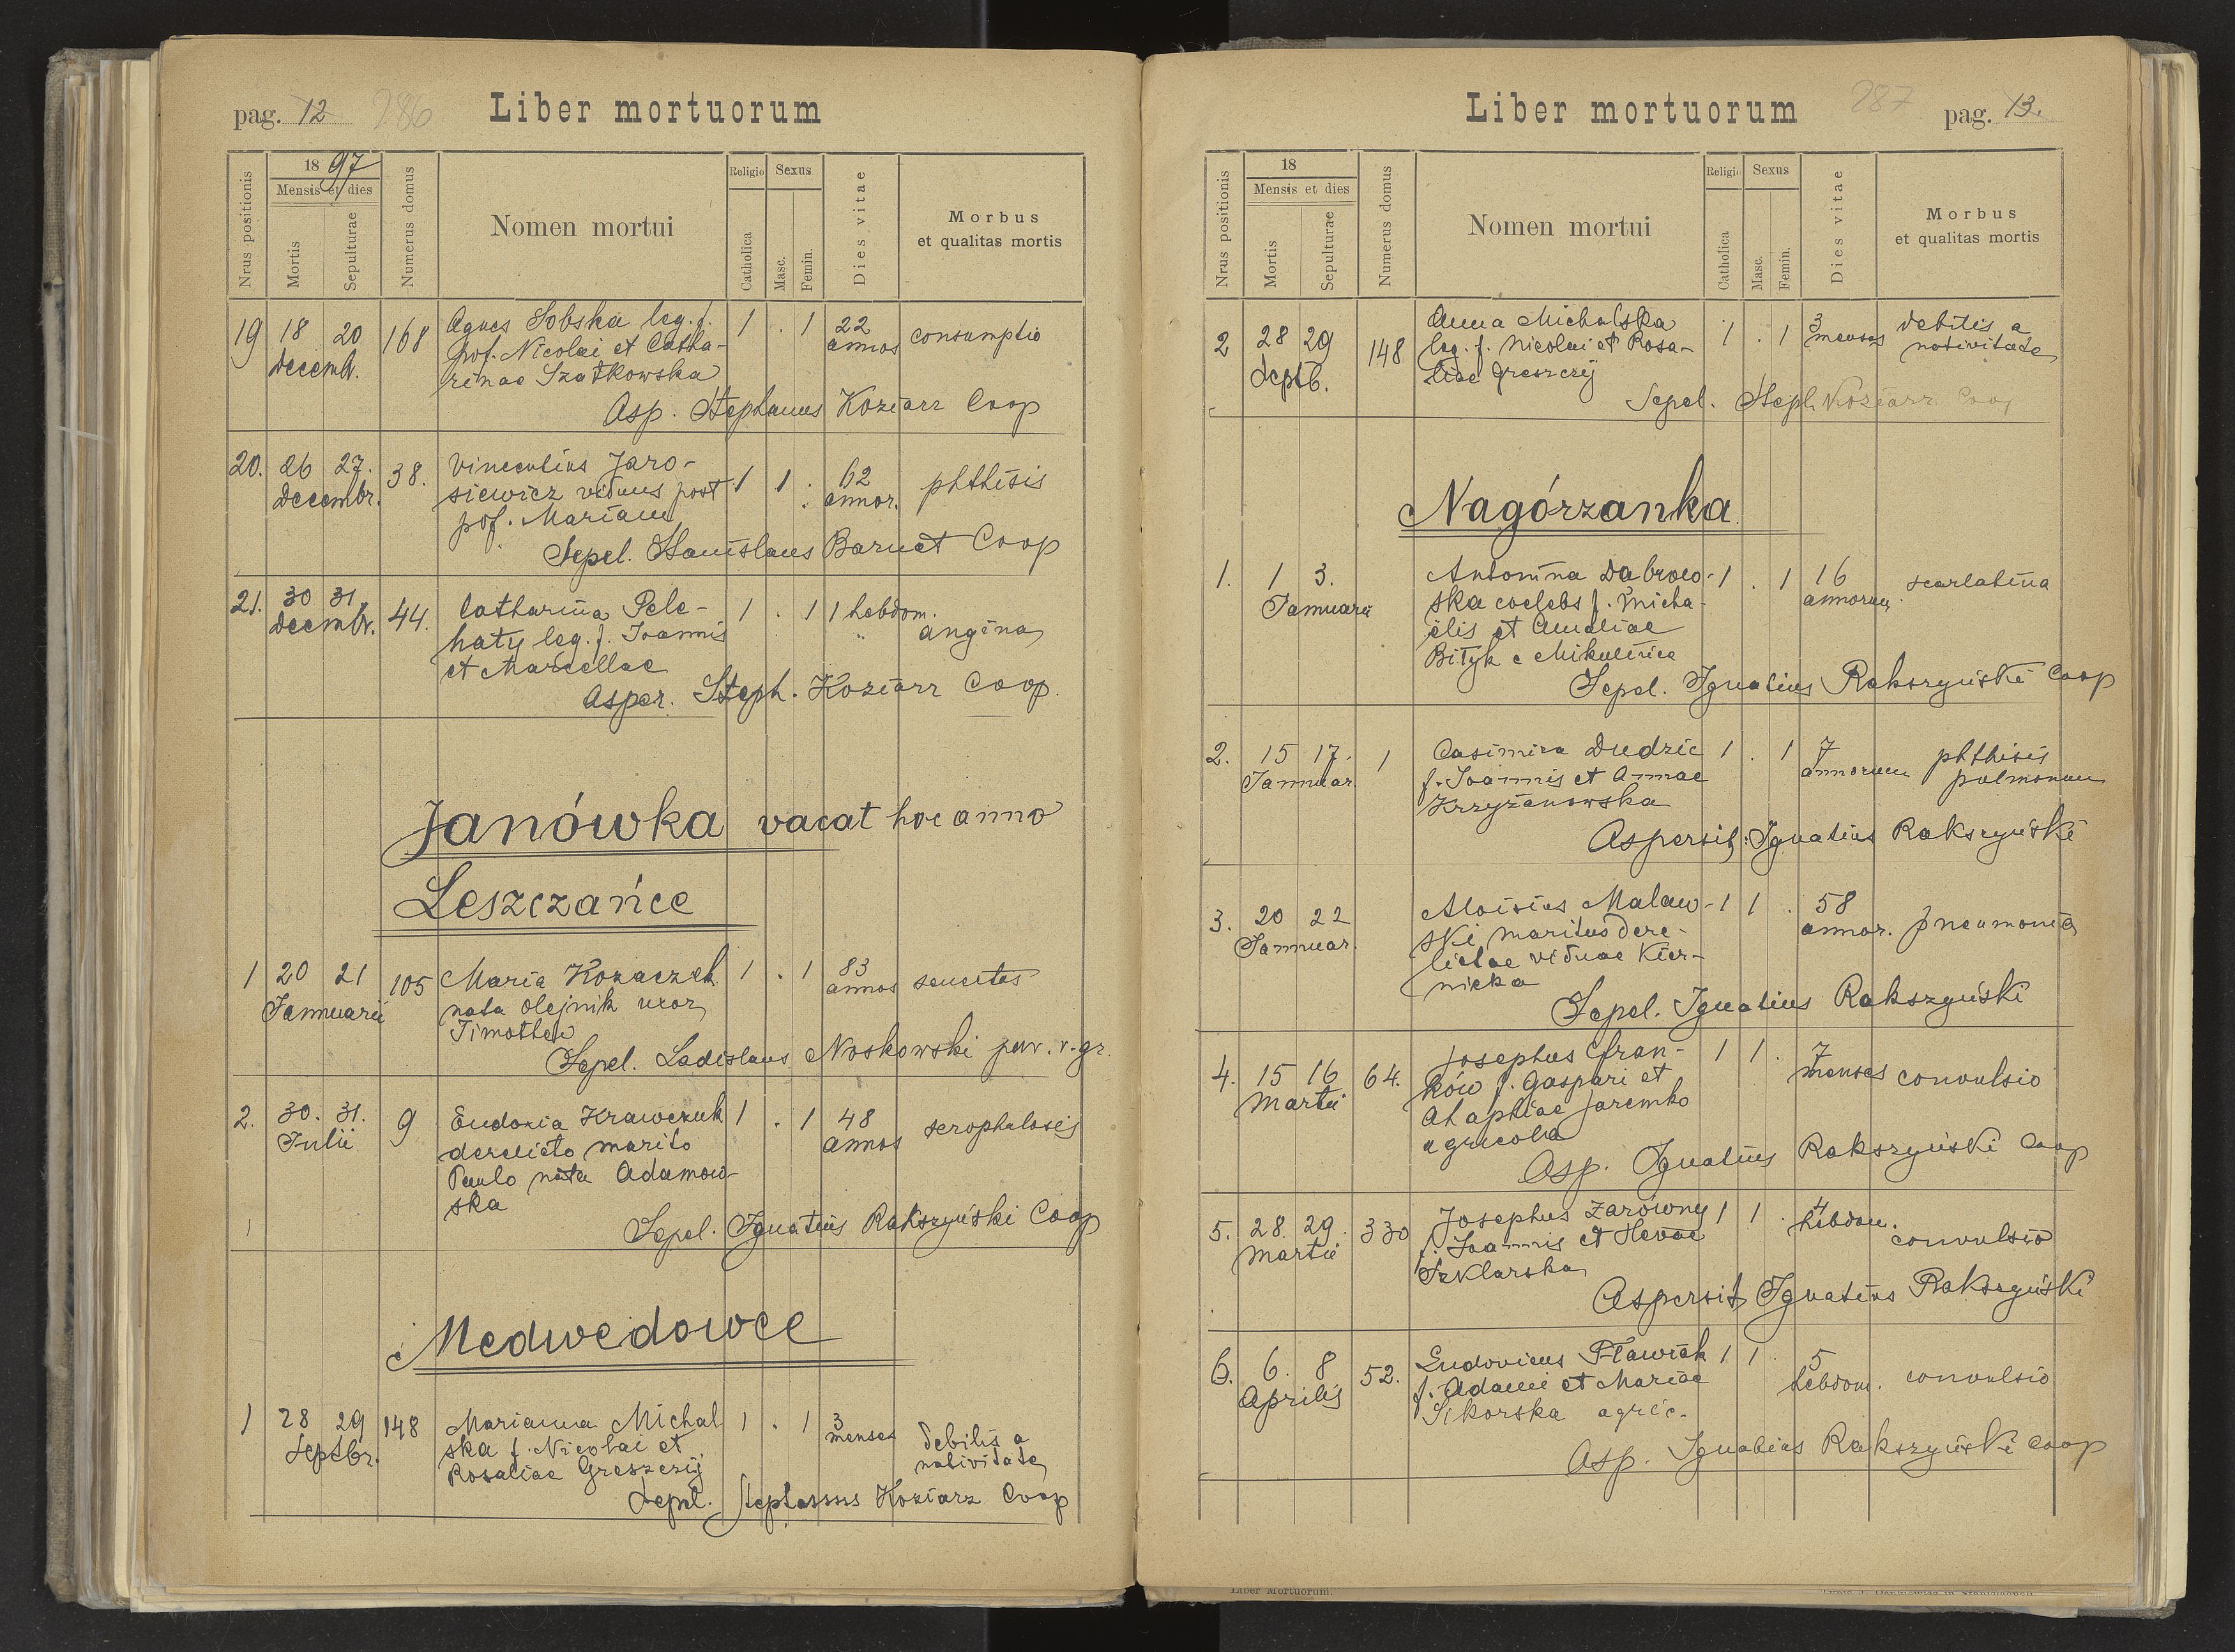 pag. 12 286 Liber mortuorum
Nrus positionis
18 97
Mensis et dies
Mortis
Sepulturae
Numerus domus
Nomen mortui
Religio
Catholica
Sexus
Masc.
Femin.
Dies vitae
Morbus
et qualitas mortis
19 18 20 168 Agnes Sobska leg. f. 1 . 1 22 consumptio
decemb. pof. Nicolai et Catha- annos
rinae Szatkowska
Asp. Stephanus Koziarz Coop
20. 26 27. 38. Vincentius Jaro- 1 1 . 62 phthisis
decembr. siewicz viduus post annor.
pof. Mariam
Sepel. Stanislaus Barnat Coop
21. 30 31. 44. Catharina Pele- 1 . 1 1 hebdom.
decembr. haty leg. f. Joannis " angina
et Marcellae
Asper. Steph. Koziarz Coop.
Janówka vacat hoc anno
Leszczańce
1 20 21 105 Maria Kozaczek 1 . 1 83 senectas
Januarii nata Olejnik uxor annos
Timothei
Sepel. Ladislaus Noskowski par. r. gr.
2. 30. 31. 9 Eudoxia Krawczuk 1 . 1 48 scrophulosis
Julii derelicto marito annos
Paulo nata Adamow-
ska
Sepel. Ignatius Rakszyński Coop
Medwedowce
1 28 29 148 Marianna Michal 1 . 1 3 debilis a
Septbr. ska f. Nicolai et menses nativitate
Rosaliae Greszczij
Sepel. Stephanus Koziarz Coop
Liber mortuorum 287 pag. 13.
Nrus positionis
18
Mensis et dies
Mortis
Sepulturae
Numerus domus
Nomen mortui
Religio
Catholica
Sexus
Masc.
Femin.
Dies vitae
Morbus
et qualitas mortis
2 28 29 148 Anna Michalska 1 . 1 3 debilis a
Septb. leg. f. Nicolai et Rosa- menses nativitate
liae Greszczij
Sepel. Steph. Koziarz Coop
Nagórzanka
1. 1 3. Antonina Dabrow- 1 . 1 16 scarlatina
Januarii ska coelebs f. Micha- annorum
elis et Amaliae
Bityk e Mikulińce
Sepel. Ignatius Rakszyński Coop
2. 15 17. 1 Casimira Dudzic 1 . 1 7 phthisis
Januar. f. Joannis et Annae annorum pulmonum
Krzyżanowska
Aspersit Ignatius Rakszyński
3. 20 22 Aloisius Malaw- 1 1 . 58 pneumonia
Januar. ski maritus dere- annor.
lictae viduae Kier-
nicka
Sepel. Ignatius Rakszyński
4. 15 16 64. Josephus Fran- 1 1 . 7 convulsio
Martii ków f. Gaspari et menses
Ahaphiae Jaremko
agricola
Asp. Ignatius Rakszyński Coop
5. 28. 29. 330 Josephus Zarówny 1 1 . 4
Martii f. Joannis et Hevae hebdom. convulsio
Szklarska
Aspersit Ignatius Rakszyński
6. 6. 8 52. Ludovicus Fławiak 1 1 . 5 convulsio
Aprilis f. Adami et Mariae hebdom.
Sikorska agric.
Asp. Ignatius Rakszyński Coop
Liber Mortuorum.